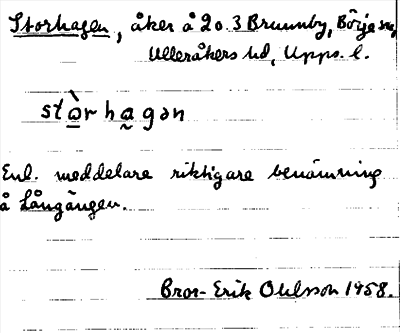 Storhagen, åker å 2 o. 3 Brunnby, Börje sn,
Ulleråkers hd, Upps. l.
stòrhagən
Enl. meddelare riktigare benämning
å Långängen.
Bror-Erik Ohlsson 1958.